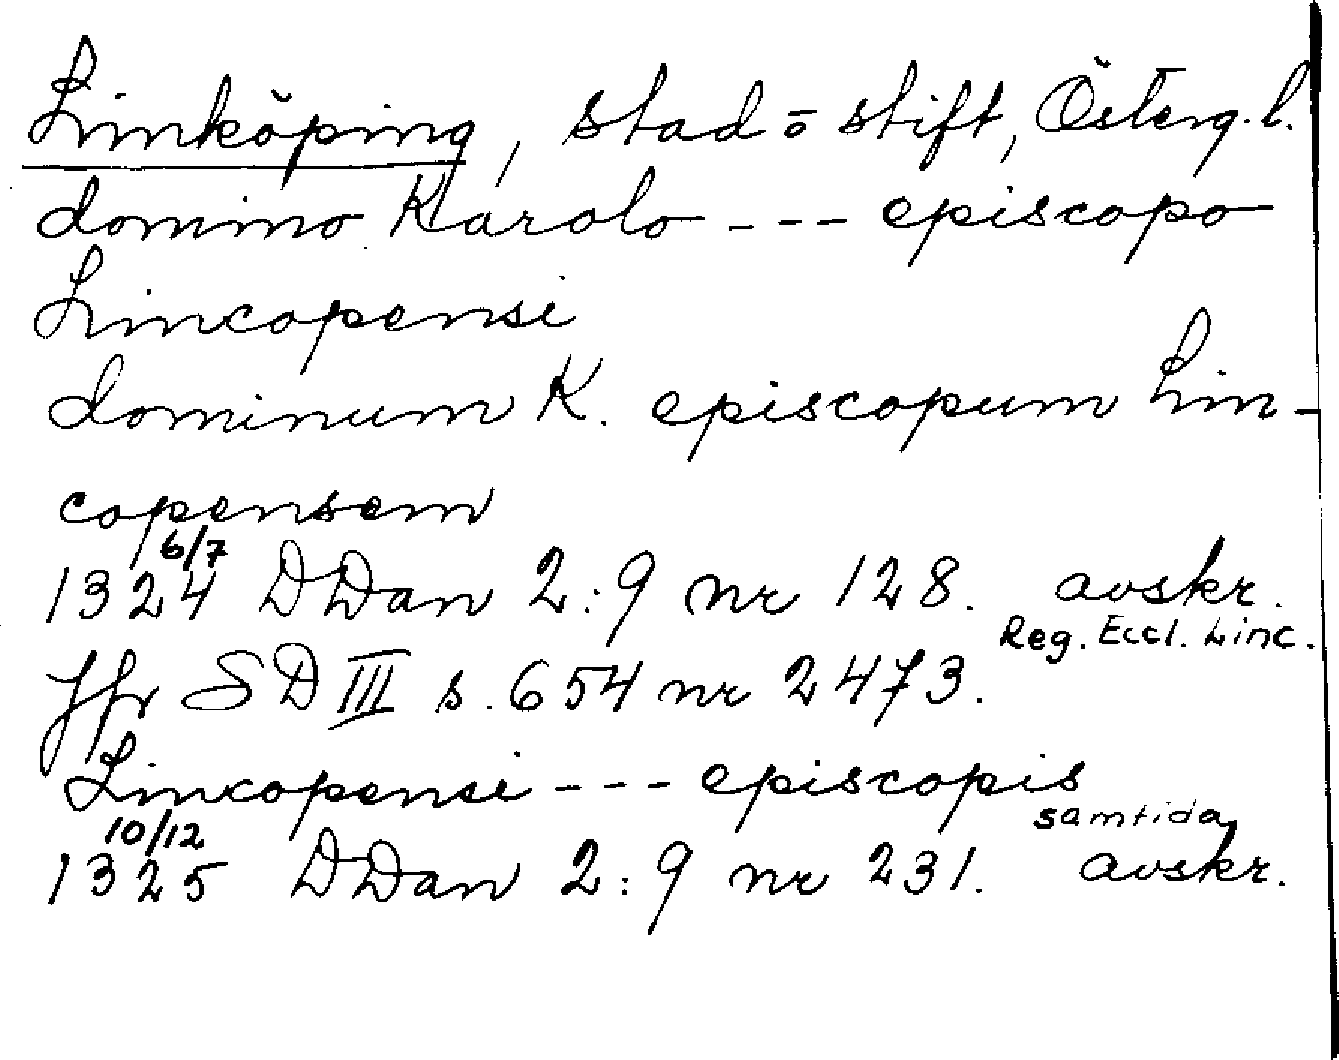 Linköping, stad o stift, Österg.l.
domino Karolo --- episcopo
Lincopensi
dominum K. episcopum Lin-
copensem
6/7
1324 DDan 2:9 nr 128. avskr.
Reg. Eccl. Linc.
Jfr SD III s. 654 nr 2473.
Lincopensi --- episcopis
10/12 samtida
1325 DDan 2:9 nr 231. avskr.